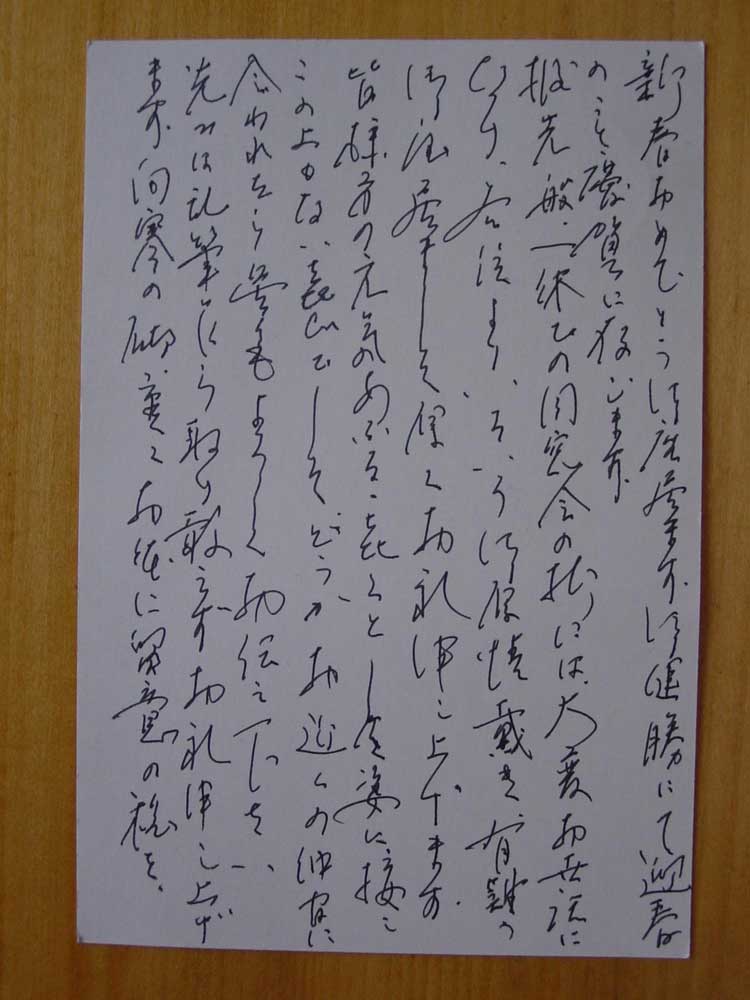 新春おめでとう御座居ます 御健勝にて迎春
のこと慶賀に存じます
扨先般一休での同窓会の折には、大変お世話に
なり、又
いろいろ御厚情戴き、有難う
御座居ました 厚くお礼申し上げます
皆様方の元気あふるゝ 喜々とした姿に接し
この上もない喜びでした どうかお近くの仲間に
会われたら 皆様 よろしくお伝え下さい、
先は乱筆ながら取り敢えずお礼申し上げ
ます 向寒の砌 重々お体に留意の程を、